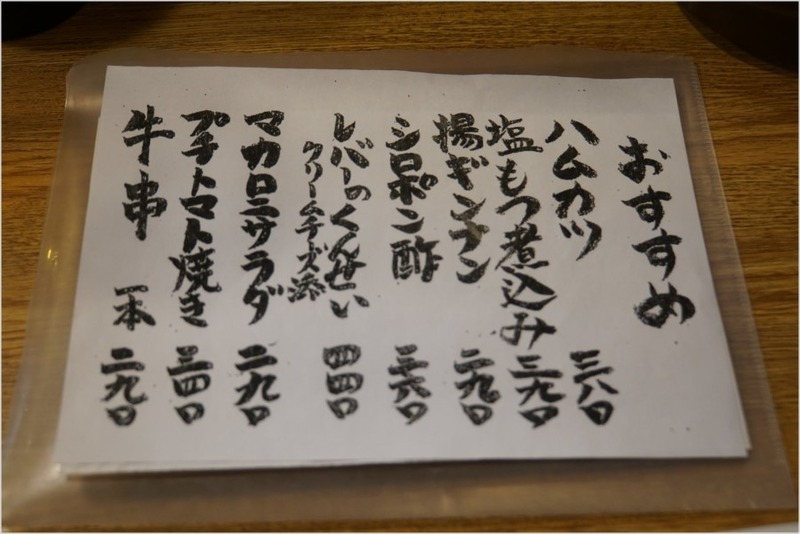 おすすめ
ハムカツ 三八〇
塩もつ煮込み 三九〇
揚ギンナン 二九〇
シロポン酢 三六〇
レバーのくんせい
クリームチーズ添 四四〇
マカロニサラダ 二九〇
プチトマト焼き 三四〇
牛串 一本 二九〇